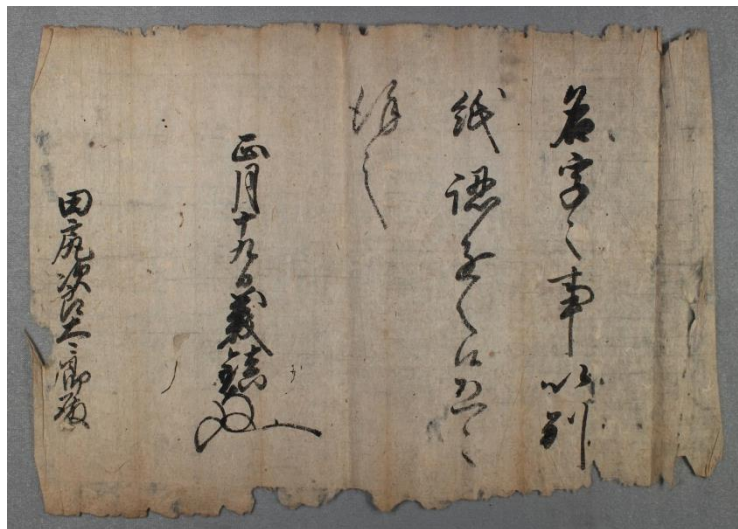 名字之事以別
紙認遣之候恐々
謹言
正月十九日義鎮
田尻次郎太郎殿